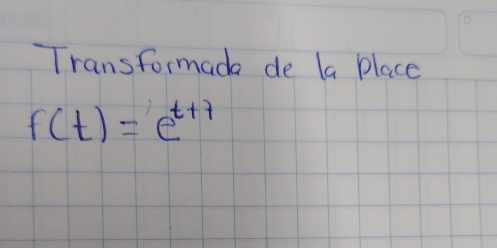 Transformada de la place
f(t) = e^{t+7}